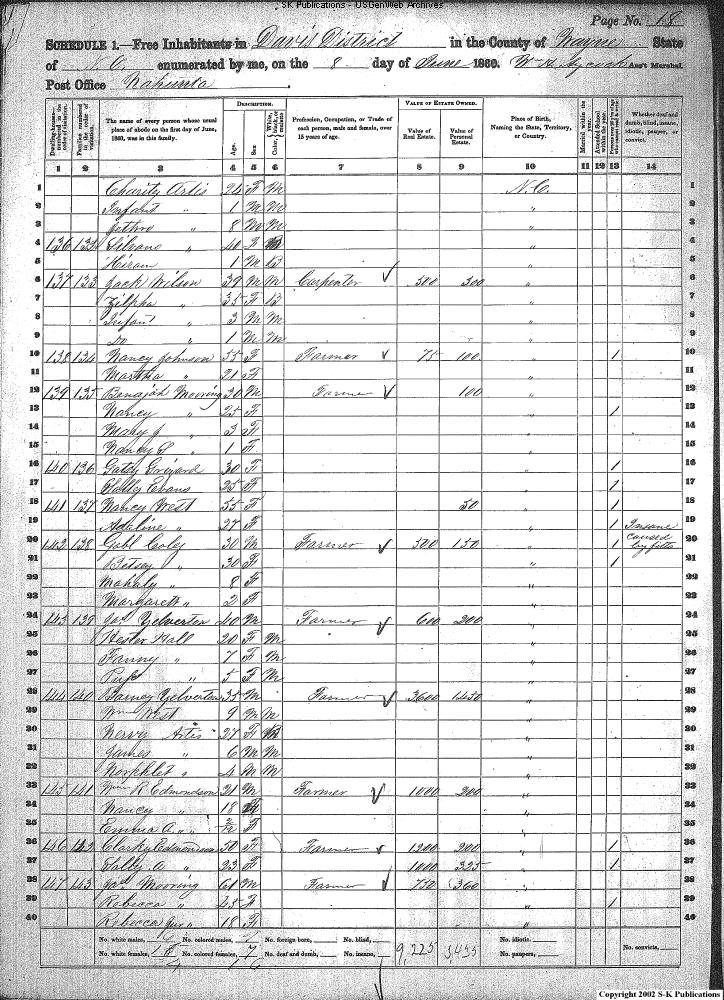 SK Publications - USGenWeb Archives
Page No. 18
SCHEDULE 1.—Free Inhabitants in Davis District in the County of Wayne State
of N. C. enumerated by me, on the 8 day of June 1860. Ass't Marshal.
Post Office Nahunta
Dwelling-houses numbered in the order of visitation.
Families numbered in the order of visitation.
The name of every person whose usual place of abode on the first day of June, 1860, was in this family.
DESCRIPTION.
Age.
Sex.
Color, White, black, or mulatto.
Profession, Occupation, or Trade of each person, male and female, over 15 years of age.
VALUE OF ESTATE OWNED.
Value of Real Estate.
Value of Personal Estate.
Place of Birth, Naming the State, Territory, or Country.
Married within the year.
Attended School within the year.
Whether deaf and dumb, blind, insane, idiotic, pauper, or convict.
1 2 3 4 5 6 7 8 9 10 11 12 13 14
1 Charity Artis 24 F M N.C. 1
2 Infant " 1 M M " 2
3 Jethro " 8 M M " 3
4 136 132 Silvano " 40 F B " 4
5 Hiram 1 M B " 5
6 137 133 Jack Wilson 39 M M Carpenter 500 300 " 6
7 Zilpha " 35 F B " 7
8 Infant " 3 M M " 8
9 Do " 1 M M " 9
10 138 134 Nancy Johnson 55 F Farmer 75 100 " 1 10
11 Martha " 21 F " 11
12 139 135 Benajah Mooring 30 M Farmer 100 " 12
13 Nancy " 25 F " 1 13
14 Mary J " 3 F " 14
15 Nancy S " 1 F " 15
16 140 136 Gatsy 30 F " 1 16
17 Evans 25 F " 1 17
18 141 137 Nancy West 55 F 50 " 1 18
19 Adeline " 27 F " 1 Insane 19
20 142 138 Gabl Coley 30 M Farmer 500 150 " 1 caused 20
21 Betsey " 30 F " 1 by fitts 21
22 Mahaly " 8 F " 22
23 Margarett " 2 F " 23
24 143 139 Jas Yelverton 40 M Farmer 600 200 " 24
25 Hester Hall 20 F M " 25
26 Fanny " 7 F M " 26
27 " 5 F M " 27
28 144 140 Barney Yelverton 35 M Farmer 3600 1450 " 28
29 Wm West 9 M M " 29
30 Nervy Artis 27 F B " 30
31 James " 6 M M " 31
32 Norphlet " 4 M M " 32
33 145 141 Wm R Edmondson 21 M Farmer 1000 200 " 33
34 Nancy " 18 F " 34
35 Emma A. " 2/12 F " 35
36 146 142 Clarky Edmondson 50 F Farmer 1200 200 " 1 36
37 Sally A " 23 F 1000 325 " 1 37
38 147 143 Jas Mooring 61 M Farmer 750 360 " 38
39 Rebecca " 45 F " 1 39
40 Rebecca Jur " 18 F " 40
No. white males, No. colored males, No. foreign born, No. blind, No. idiotic,
No. white females, 18 No. colored females, 7 No. deaf and dumb, No. insane, 9,225 3,435 No. paupers, No. convicts,
Copyright 2002 S-K Publications